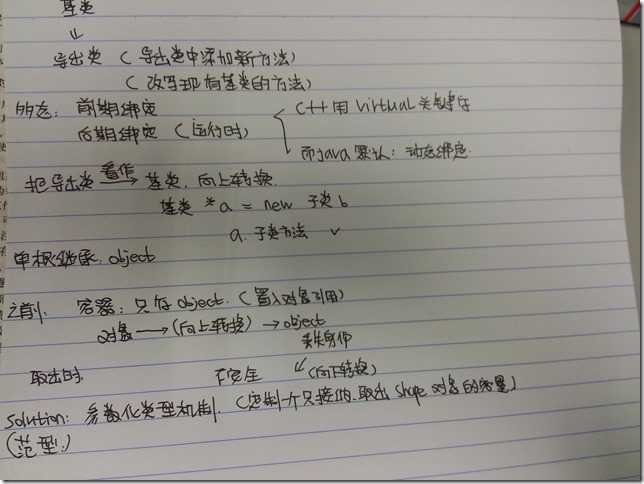 基类
⇓
导出类 ( 导出类中添加新方法)
( 改写现有基类的方法)
多态: 前期绑定 C++用 virtual 关键字
后期绑定 (运行时)
而java 默认: 动态绑定.
把导出类 看作→ 基类. 向上转换.
基类 *a = new 子类 b
a. 子类方法 ✓
单根继承. object
之前. 容器: 只存 object. (置入对象引用)
对象 → (向上转换) → object
丢失身份
取出时. 不安全 ↙ (向下转换)
solution: 参数化类型机制. (定制一个只接纳.取出 shape 对象的容器)
(范型.)